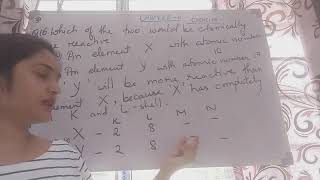 Q16. Which of the two would be chemically
reactive
element X with atomic number
An element Y with atomic number 17
'Y' will be more reactive than
element X, because 'X' has completely
K and L-shell.
K L M N
X - 2 8 - -
Y - 2 8 -